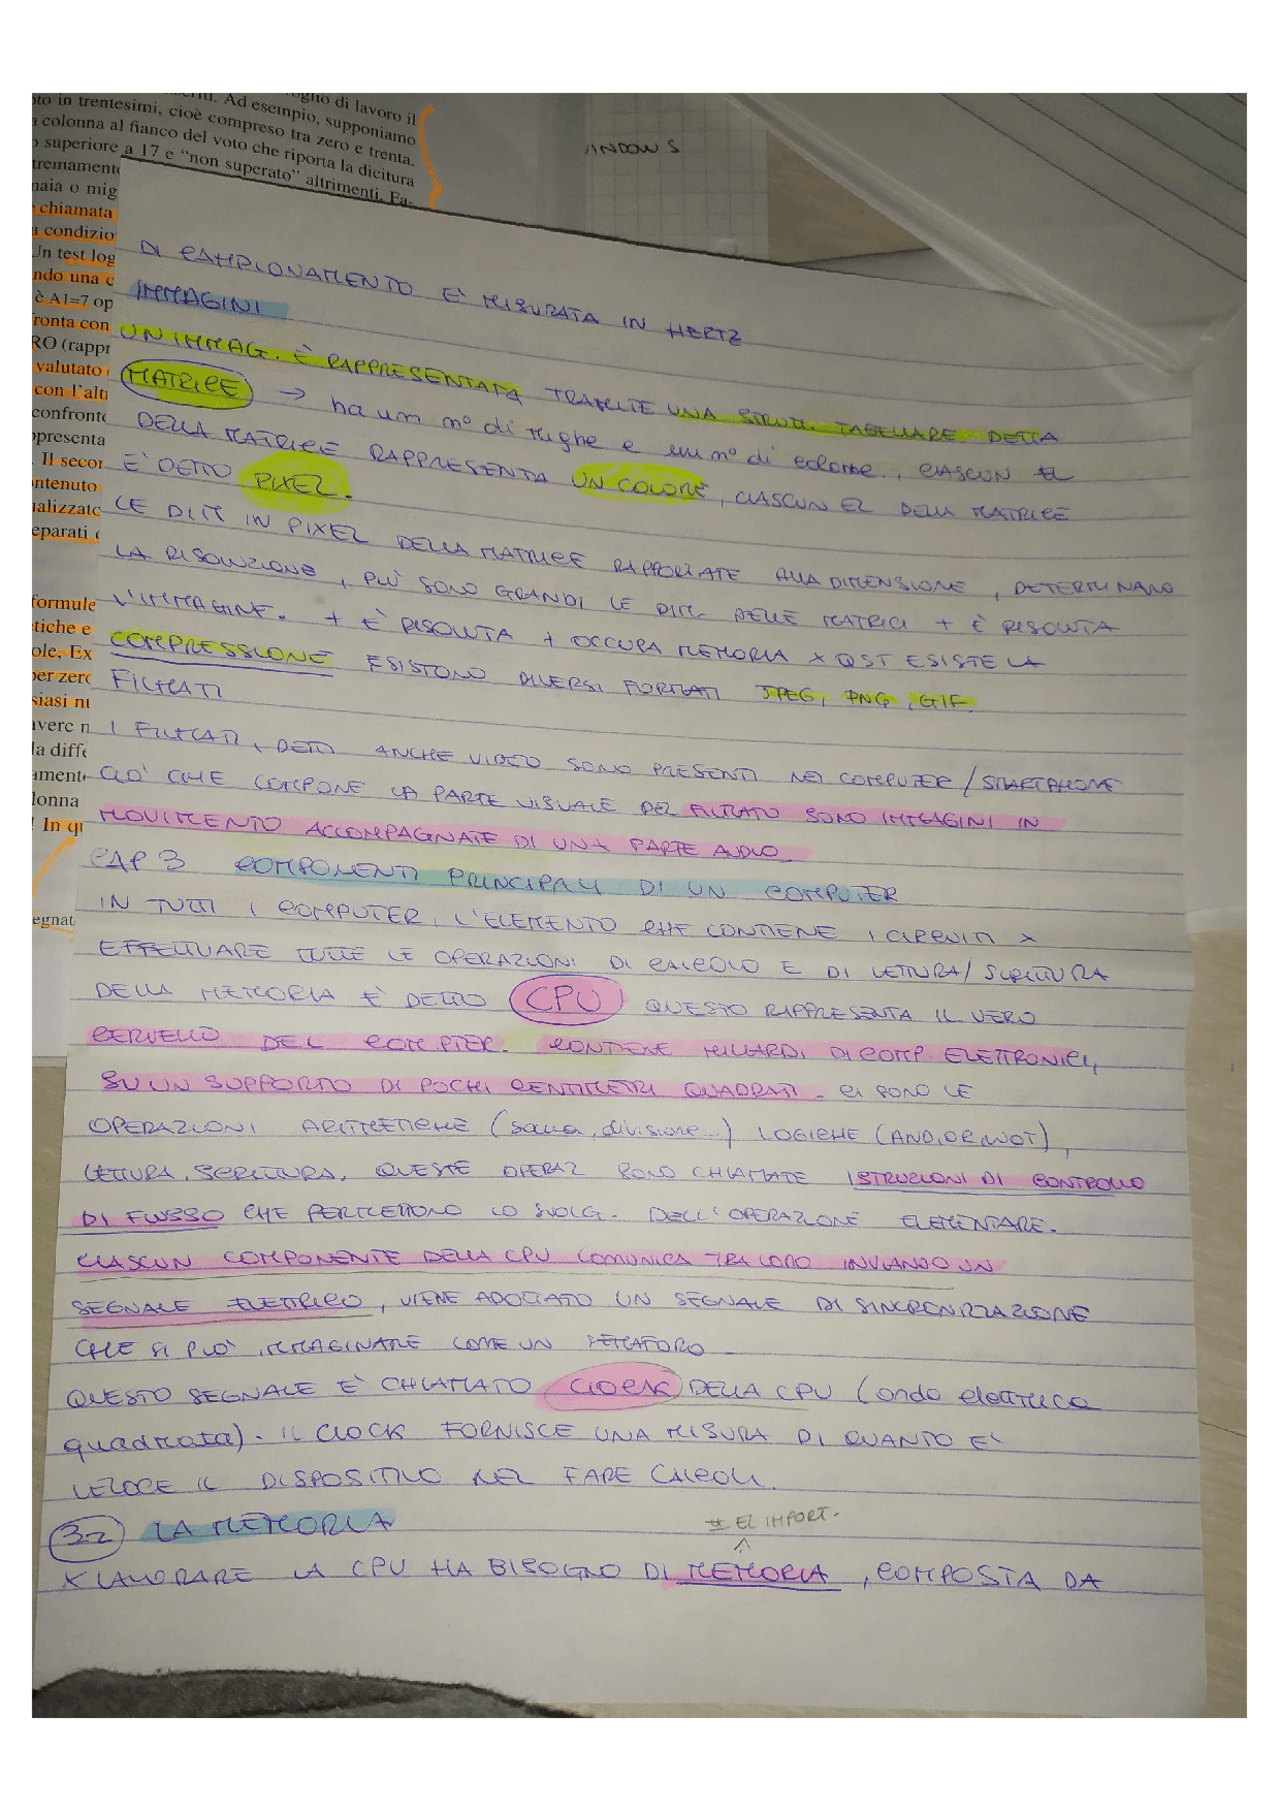 oglio di lavoro il
oto in trentesimi, cioè compreso tra zero e trenta.
Ad esempio, supponiamo
a colonna al fianco del voto che riporta la dicitura
superiore a 17 e "non superato" altrimenti. Fa-
tremamente
naia o mig
chiamata
a condizio
Un test log
ndo una c
è A1=7 op
ronta con
RO (rappr
valutato
con l'alt
confronto
ppresenta
Il secon
ntenuto
ializzato
eparati
formule
tiche e
ole, Ex
per zero
siasi nu
avere n
la diffe
amente
lonna
! In qu
egnat
INDOWS
DI CAMPIONAMENTO E' MISURATA IN HERTZ
IMMAGINI
UN IMMAG. È RAPPRESENTATA TRAMITE UNA STRUTT. TABELLARE DETTA
MATRICE → ha un n° di righe e un n° di colonne, CIASCUN EL
DELLA MATRICE RAPPRESENTA UN COLORE, CIASCUN EL DELLA MATRICE
E' DETTO PIXEL.
LE DIM IN PIXEL DELLA MATRICE RAPPORTATE ALLA DIMENSIONE, DETERMINANO
LA RISOLUZIONE, PIU' SONO GRANDI LE DIM. DELLE MATRICI + È RISOLUTA
L'IMMAGINE. + È RISOLUTA + OCCUPA MEMORIA X QST ESISTE LA
COMPRESSIONE ESISTONO DIVERSI FORMATI JPEG, PNG, GIF.
FILMATI
I FILMATI, DETTI ANCHE VIDEO SONO PRESENTI NEI COMPUTER/SMARTPHONE
CIO' CHE COMPONE LA PARTE VISUALE DEL FILMATO SONO IMMAGINI IN
MOVIMENTO ACCOMPAGNATE DI UNA PARTE AUDIO.
CAP 3 COMPONENTI PRINCIPALI DI UN COMPUTER
IN TUTTI I COMPUTER, L'ELEMENTO CHE CONTIENE I CIRCUITI X
EFFETTUARE TUTTE LE OPERAZIONI DI CALCOLO E DI LETTURA/SCRITTURA
DELLA MEMORIA È DETTO CPU QUESTO RAPPRESENTA IL VERO
CERVELLO DEL COMPTER. CONTIENE MILIARDI DI COMP. ELETTRONICI,
SU UN SUPPORTO DI POCHI CENTIMETRI QUADRATI. CI SONO LE
OPERAZIONI ARITMETICHE (somma, divisione...) LOGICHE (AND, OR, NOT),
LETTURA, SCRITTURA. QUESTE OPERAZ SONO CHIAMATE ISTRUZIONI DI CONTROLLO
DI FLUSSO CHE PERMETTONO LO SVOLG. DELL'OPERAZIONE ELEMENTARE.
CIASCUN COMPONENTE DELLA CPU COMUNICA TRA LORO INVIANDO UN
SEGNALE ELETTRICO, VIENE ADOTTATO UN SEGNALE DI SINCRONIZZAZIONE
CHE SI PUO' IMMAGINARE COME UN SEMAFORO
QUESTO SEGNALE E' CHIAMATO CLOCK DELLA CPU (onda elettrica
quadrata). IL CLOCK FORNISCE UNA MISURA DI QUANTO E'
VELOCE IL DISPOSITIVO NEL FARE CALCOLI.
3.2 LA MEMORIA
# EL IMPORT.
X LAVORARE LA CPU HA BISOGNO DI MEMORIA, COMPOSTA DA